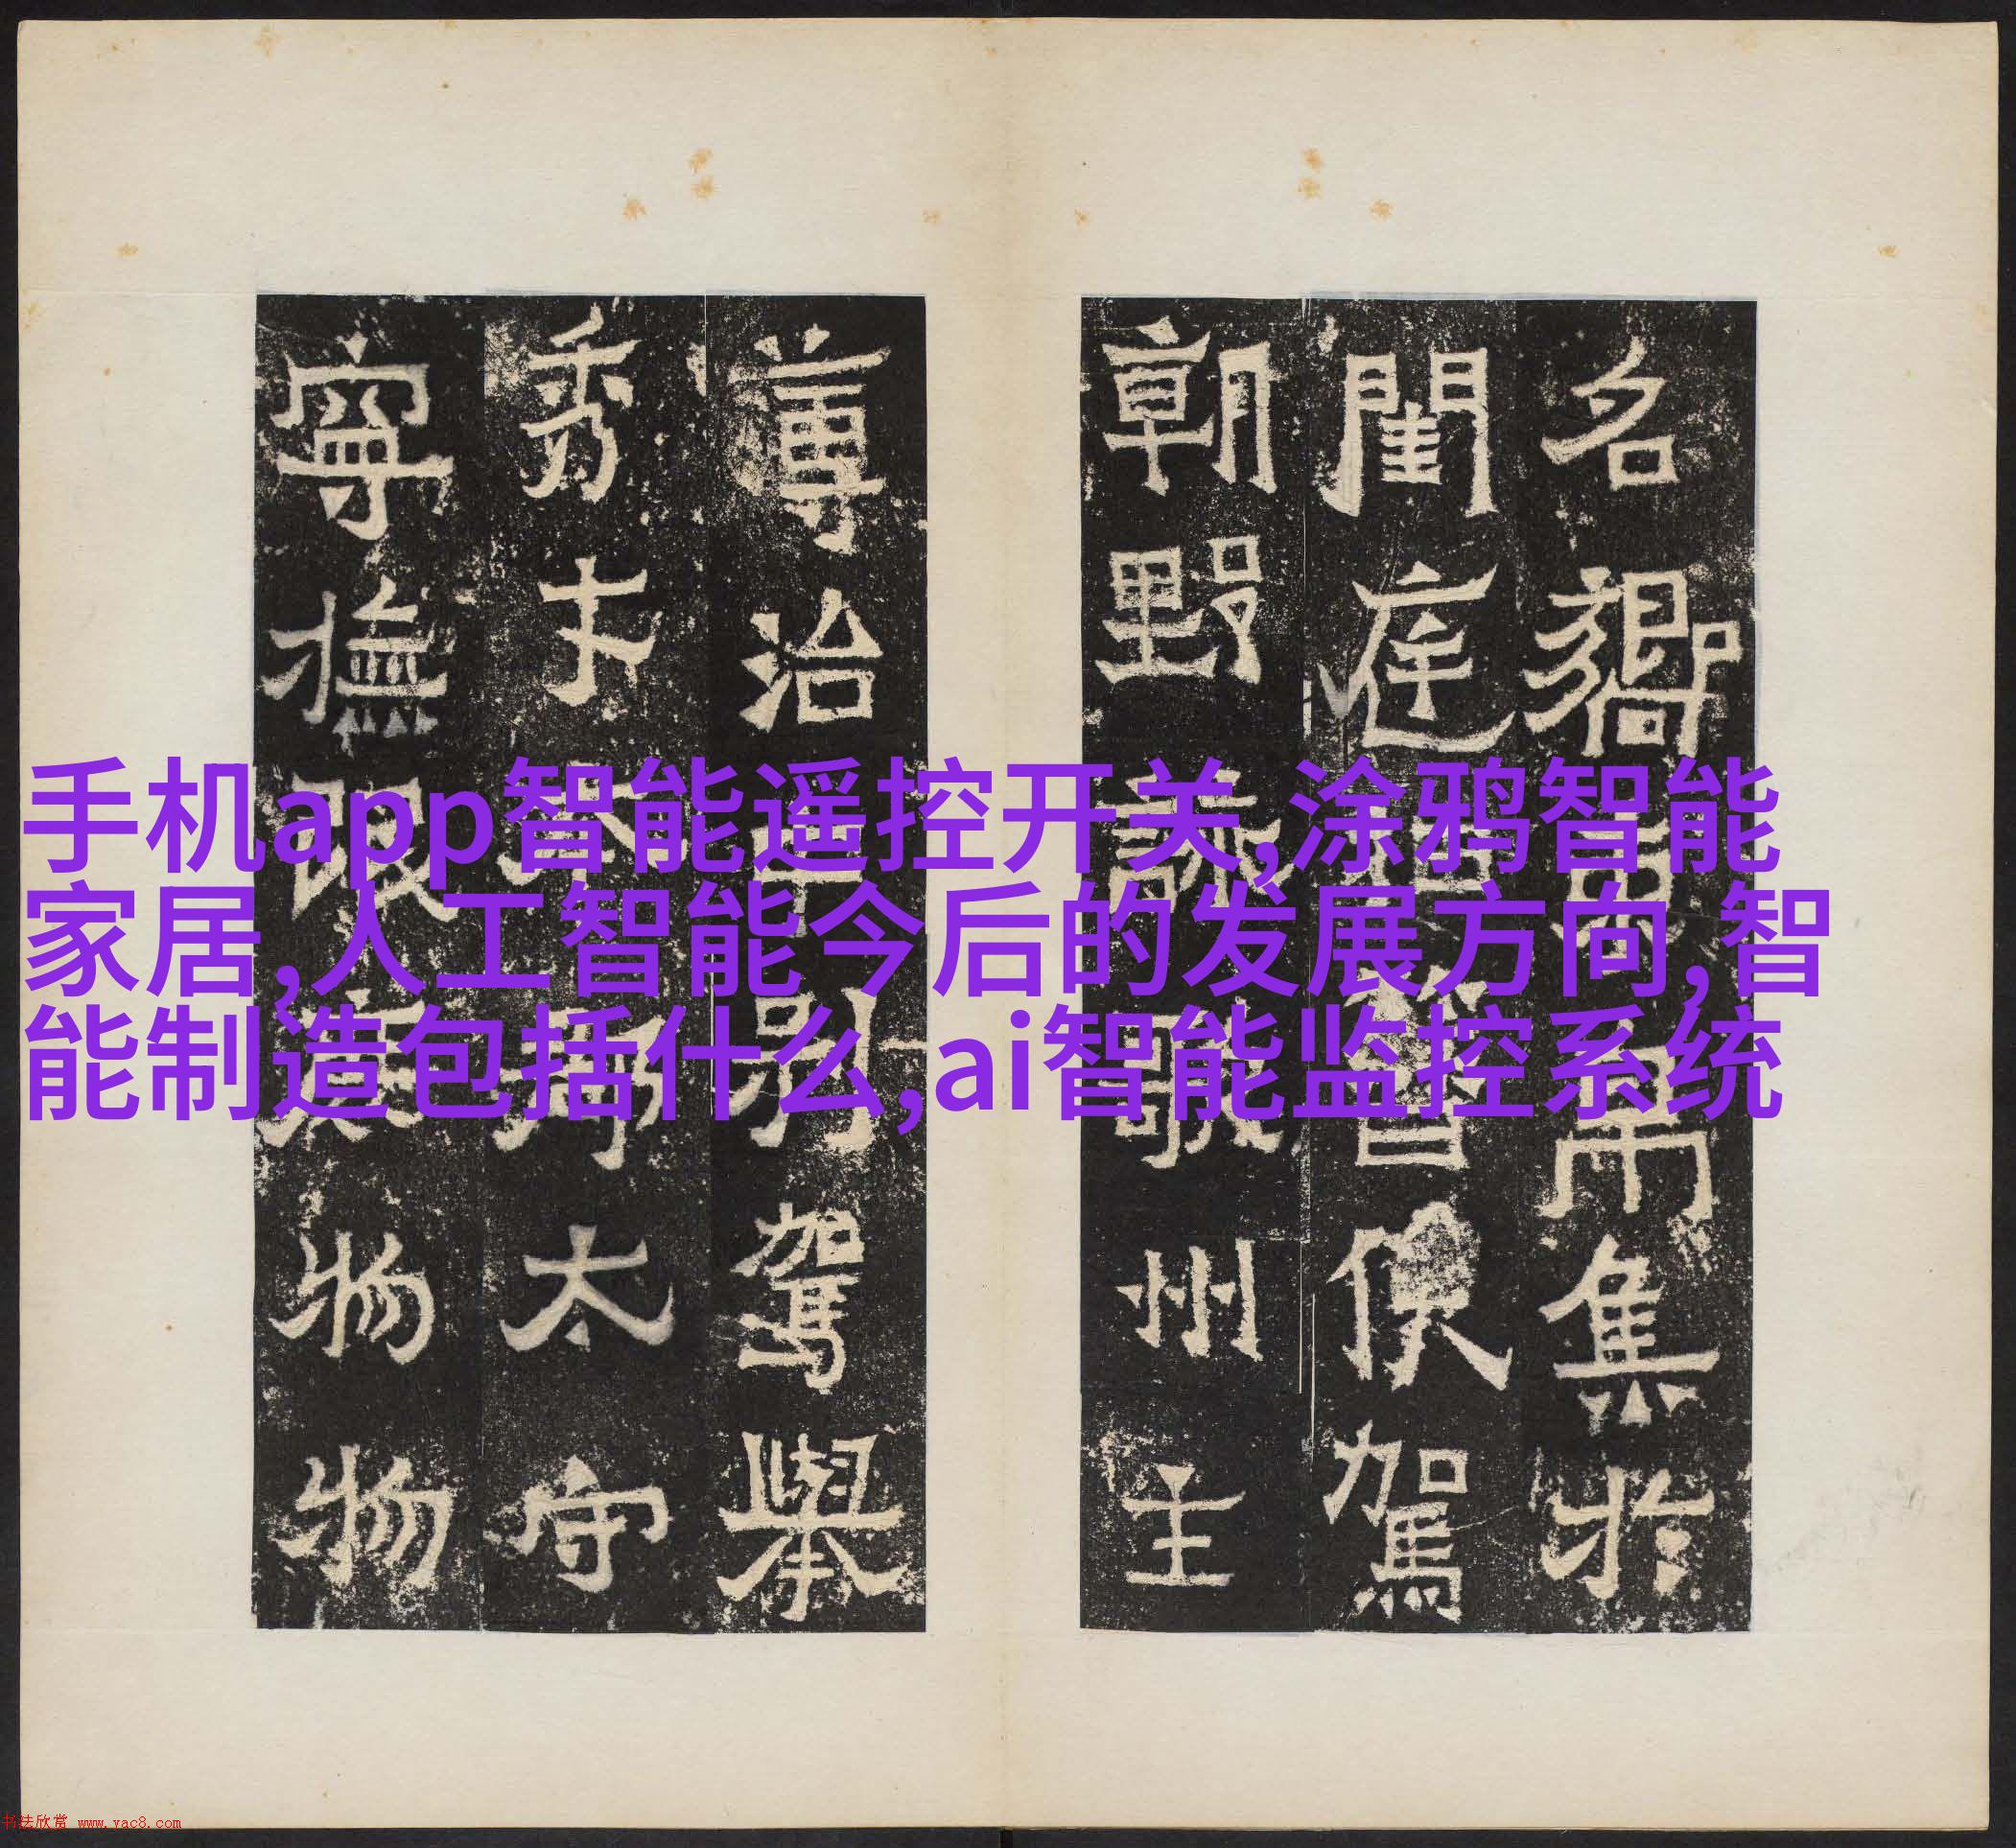 手机app智能遥控开关,涂鸦智能
家居,人工智能今后的发展方向,智
能制造包括什么,ai智能监控系统
名嚮束帛集於
閨庭抽簪俟駕
朝野詠歌州主
簿治中別駕舉
秀才本郡太守
寧撫氓庶物物
书法欣赏 www.yac8.com